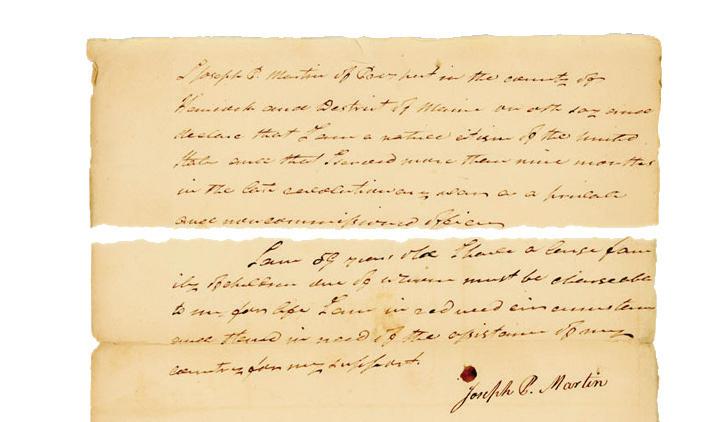 I Joseph P. Martin of Prospect in the county of
Hancock and District of Maine on oath say and
declare that I am a native citizen of the United
States and that I served more than nine months
in the late revolutionary war as a private
and noncommissioned officer
I am 59 years old I have a large fam
ily of children one of whom must be chargeable
to me for life I am in reduced circumstan
and stand in need of the assistance of my
country for my support.
Joseph P. Martin